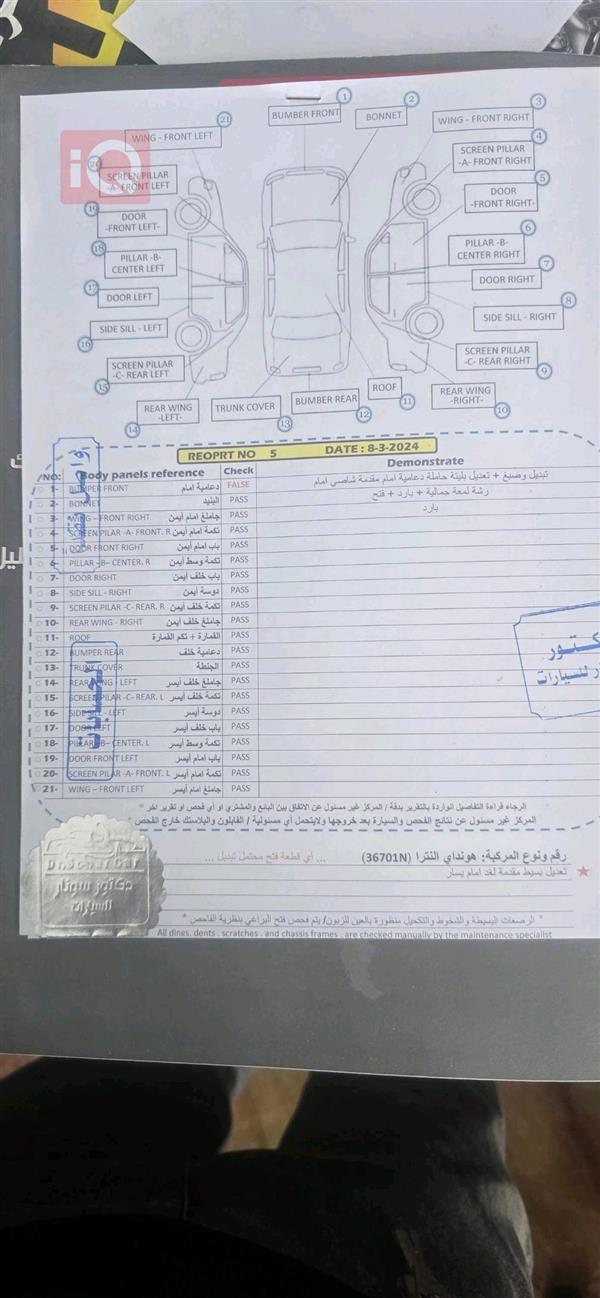 iQ
1 BUMBER FRONT
2 BONNET
3 WING - FRONT RIGHT
4 SCREEN PILLAR
-A- FRONT RIGHT
5 DOOR
-FRONT RIGHT-
6 PILLAR -B-
CENTER RIGHT
7 DOOR RIGHT
8 SIDE SILL - RIGHT
9 SCREEN PILLAR
-C- REAR RIGHT
10 REAR WING
-RIGHT-
11 ROOF
12 BUMBER REAR
13 TRUNK COVER
14 REAR WING
-LEFT-
15 SCREEN PILLAR
-C- REAR LEFT
16 SIDE SILL - LEFT
17 DOOR LEFT
18 PILLAR -B-
CENTER LEFT
19 DOOR
-FRONT LEFT-
20 SCREEN PILLAR
-A- FRONT LEFT
21 WING - FRONT LEFT
REOPRT NO 5 DATE : 8-3-2024
NO: Body panels reference Check Demonstrate
1- BUMPER FRONT دعامية امام FALSE تبديل وصبغ + تعديل بليتة حاملة دعامية امام مقدمة شاصي امام
2- BONNET البنيد PASS رشة لمعة جمالية + بارد + فتح
3- WING – FRONT RIGHT جاملغ امام أيمن PASS بارد
4- SCREEN PILAR -A- FRONT. R تكمة امام أيمن PASS
5- DOOR FRONT RIGHT باب امام أيمن PASS
6- PILLAR –B– CENTER. R تكمة وسط أيمن PASS
7- DOOR RIGHT باب خلف أيمن PASS
8- SIDE SILL - RIGHT دوسة أيمن PASS
9- SCREEN PILLAR -C- REAR. R تكمة خلف أيمن PASS
10- REAR WING - RIGHT جاملغ خلف أيمن PASS
11- ROOF القمارة + تكم القمارة PASS
12- BUMPER REAR دعامية خلف PASS
13- TRUNK COVER الجنطة PASS
14- REAR WING - LEFT جاملغ خلف أيسر PASS
15- SCREEN PILAR -C- REAR. L تكمة خلف أيسر PASS
16- SIDE SILL - LEFT دوسة أيسر PASS
17- DOOR LEFT باب خلف أيسر PASS
18- PILLAR –B– CENTER. L تكمة وسط أيسر PASS
19- DOOR FRONT LEFT باب امام أيسر PASS
20- SCREEN PILAR -A- FRONT. L تكمة امام أيسر PASS
21- WING – FRONT LEFT جاملغ امام أيسر PASS
الرجاء قراءة التفاصيل الواردة بالتقرير بدقة / المركز غير مسئول عن الاتفاق بين البائع والمشتري او أي فحص او تقرير اخر *
المركز غير مسئول عن نتائج الفحص والسيارة بعد خروجها ولايتحمل أي مسئولية / الفايلون والبلاستك خارج الفحص
رقم ونوع المركبة: هونداي النترا (36701N) ... أي قطعة فتح محتمل تبديل ...
تعديل بسيط مقدمة لغد امام يسار
* الرصعات البسيطة والشخوط والتكحيل منظورة بالعين للزبون/ يتم فحص فتح البراغي بنظرية الفاحص *
All dings, dents , scratches , and chassis frames , are checked manually by the maintenance specialist
دكتور سونار
للسيارات